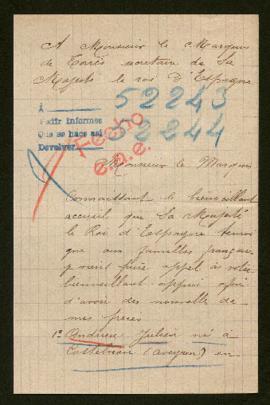 A Monsieur le Marquis
de Torrès secrétaire de Sa
Majesté le roi d'Espagne
52243
A
Pedir informes
Que se hace así
Devolver
52244
Fecho
e.e.
Monsieur le Marquis
Connaissant le bienveillant
accueil que Sa Majesté
le Roi d'Espagne
que aux familles françaises
je viens faire appel à votre
bienveillant appui afin
d'avoir des nouvelle de
mes frères
1º Andrieu Julien né à
(Aveyron) en